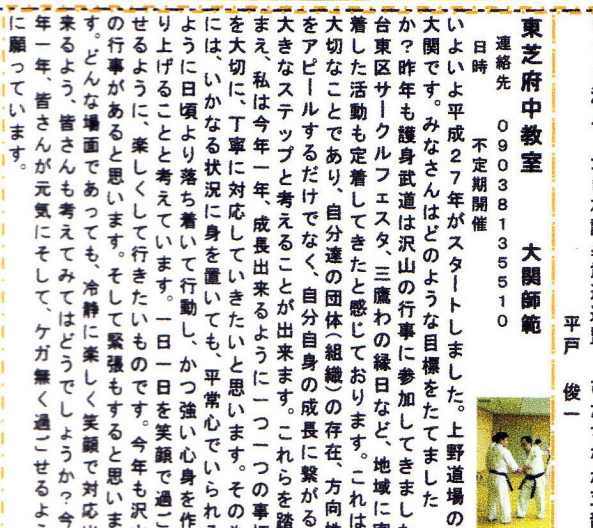 平戸 俊一
東芝府中教室 大関師範
連絡先 09038135510
日時 不定期開催
いよいよ平成27年がスタートしました。上野道場の
大関です。みなさんはどのような目標をたてました
か?昨年も護身武道は沢山の行事に参加してきました
台東区サークルフェスタ、三鷹わの縁日など、地域に密
着した活動も定着してきたと感じております。これは
大切なことであり、自分達の団体(組織)の存在、方向性
をアピールするだけでなく、自分自身の成長に繋がる
大きなステップと考えることが出来ます。これらを踏
まえ、私は今年一年、成長出来るように一つ一つの事柄
を大切に、丁寧に対応していきたいと思います。その為
には、いかなる状況に身を置いても、平常心でいられる
ように日頃より落ち着いて行動し、かつ強い心身を作
り上げることと考えています。一日一日を笑顔で過ご
せるように、楽しくして行きたいものです。今年も沢山
の行事があると思います。そして緊張もすると思いま
す。どんな場面であっても、冷静に楽しく笑顔で対応出
来るよう、皆さんも考えてみてはどうでしょうか?今
年一年、皆さんが元気にそして、ケガ無く過ごせるよう
に願っています。